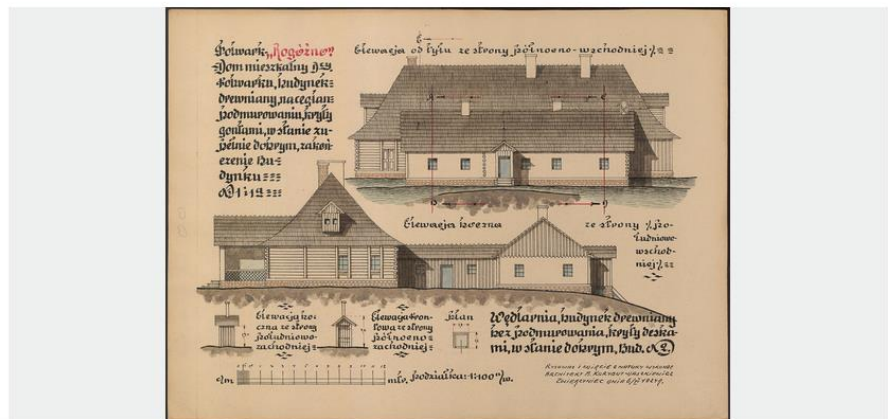 Folwark „Rogóźno”
Dom mieszkalny
folwarku, budynek
drewniany, na ceglan.
podmurowaniu, kryty
gontami, w stanie zu-
pełnie dobrym, zakoń-
czenie Bu-
dynku
№ 1:12
Elewacja od tyłu ze strony północno-wschodniej
Elewacja boczna
ze strony po-
łudniowo-
wschod-
niej
Elewacja bo-
czna ze strony
południowo-
zachodniej
Elewacja fron-
towa ze strony
północno-
zachodniej
Plan
Wędlarnia, budynek drewniany
bez podmurowania, kryty deska-
mi, w stanie dobrym, Bud. № 2.
c/m
mtr. podziałka 1:100 n/w.
Rysował i zdjęcie z natury wykonał
Architekt
Zwierzyniec dnia